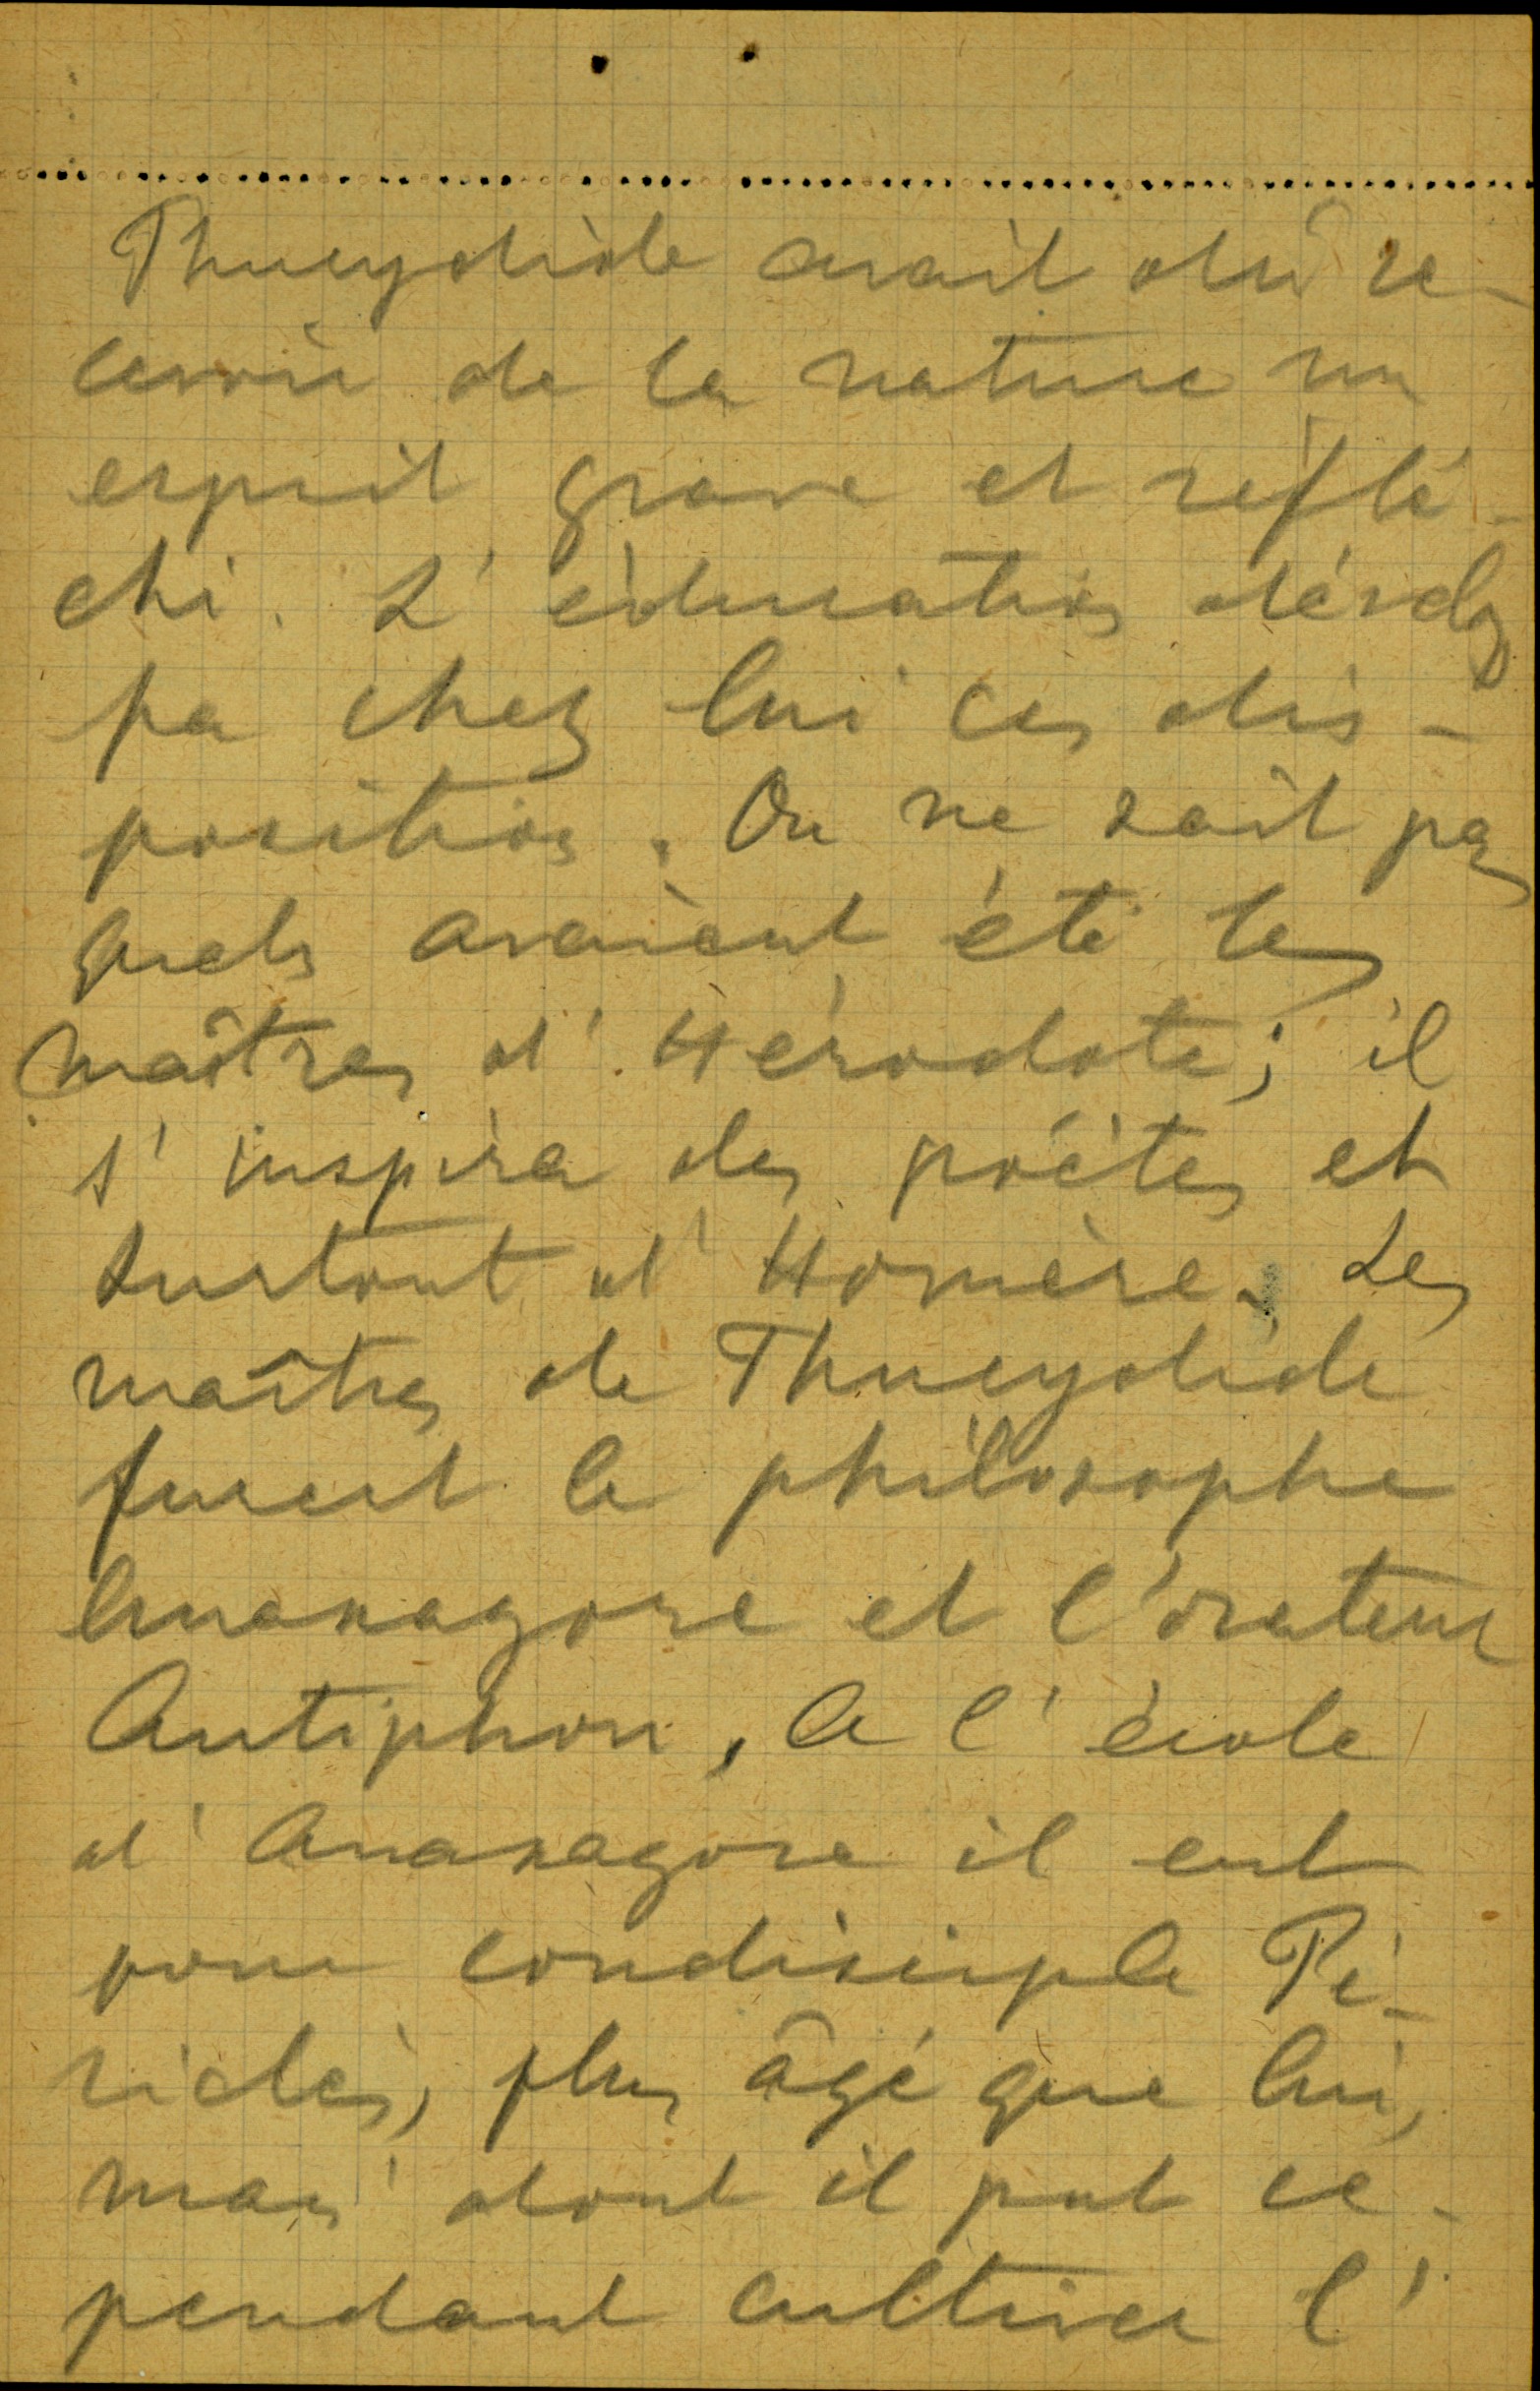 Thucydide avait dû re-
cevoir de la nature un
esprit grave et réflé-
chi. L'éducation dévelop
pa chez lui ces dis-
positions. On ne sait pas
quels avaient été les
maîtres d'Hérodote; il
s'inspira des poètes et
surtout d'Homère. Les
maîtres de Thucydide
furent le philosophe
Anaxagore et l'orateur
Antiphon, A l'école
d'Anaxagore il eut
pour condisciple Pé-
riclès, plus âgé que lui,
mais dont il put ce-
pendant cultiver l'